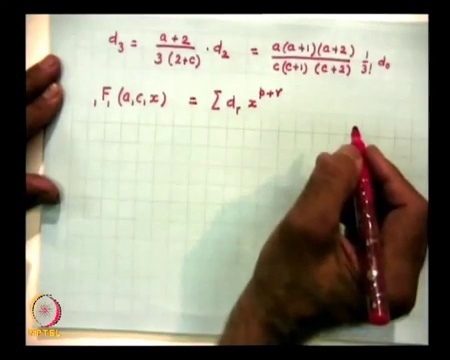 d₃ = a+2 / 3(2+c) · d₂ = a(a+1)(a+2) / c(c+1)(c+2) 1/3! d₀
₁F₁(a,c,x) = Σ dᵣ x^(p+r)
NPTEL